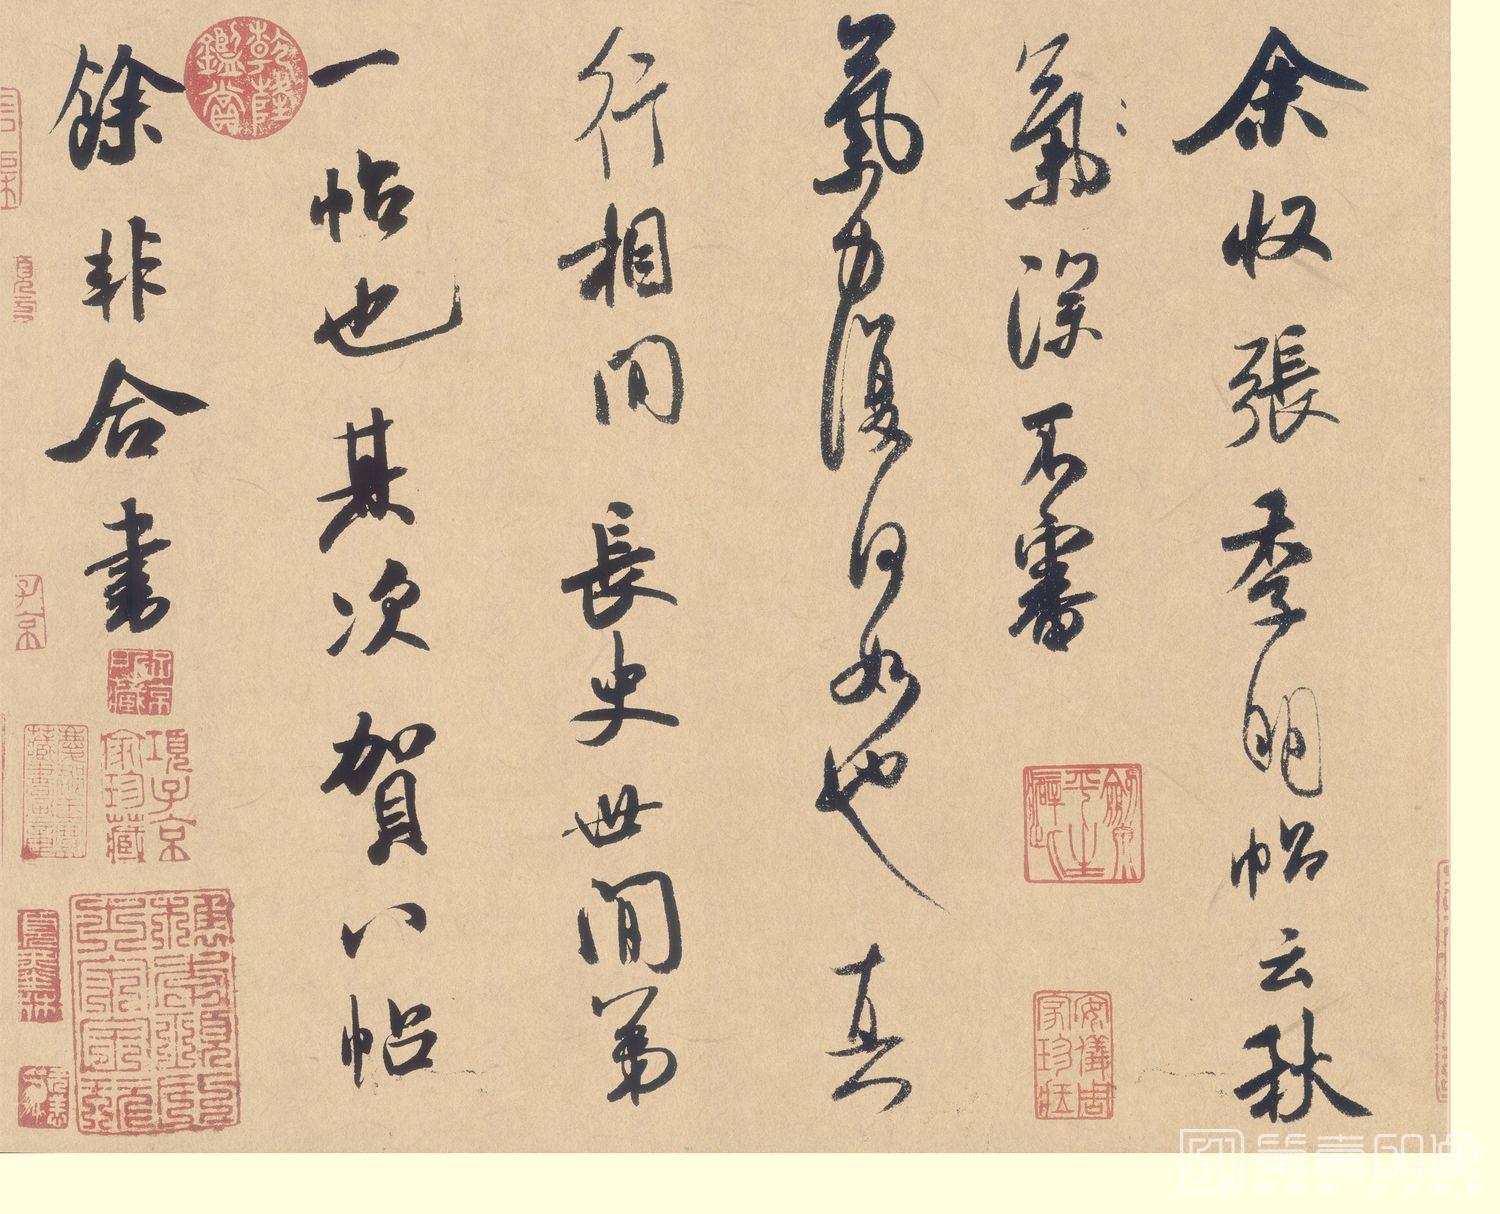 余收張季明帖云秋
氣深不審
氣力復何如也真
行相間長史世間第
一帖也其次賀八帖
餘非合書
乾隆鑑賞
項子京家珍藏
子京
安儀周家珍藏
第壹印像